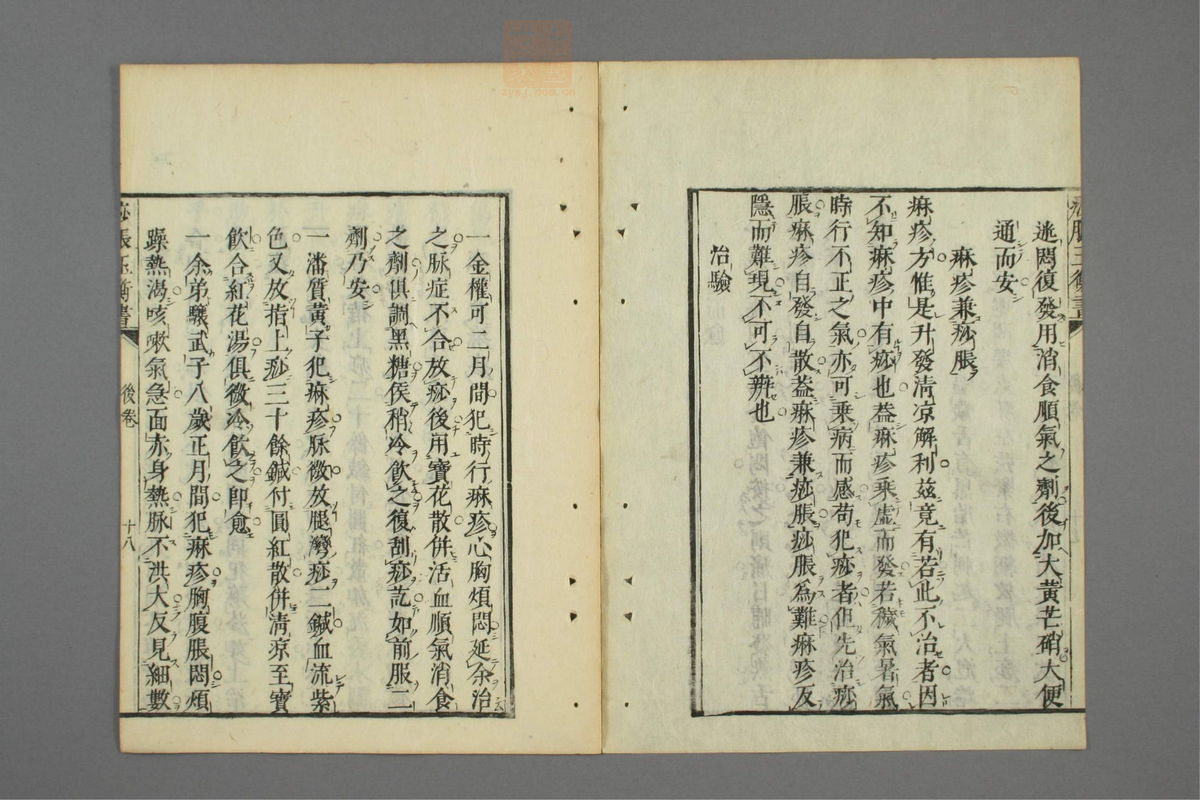 迷悶復發用消食順氣之劑後加大黃芒硝大便
通而安
麻疹兼痧脹
麻疹方惟是升發清凉解利茲竟有若此不治者因
不知麻疹中有痧也葢麻疹乘虛而發若穢氣暑氣
時行不正之氣亦可乘病而感苟犯痧者但先治痧
脹麻疹自發自散葢麻疹兼痧脹痧脹爲難麻疹反
隱而難現不可不辨也
治驗
一金懽可二月間犯時行麻疹心胸煩悶延余治
之脉症不合放痧後用寶花散併活血順氣消食
之劑俱調黑糖俟稍冷飲之復刮痧訖如前服二
劑乃安
一潘質黃子犯麻疹脉微放腿灣痧二鍼血流紫
色又放指上痧三十餘鍼付圓紅散併清凉至寶
飲合紅花湯俱微冷飲之即愈
一余弟驤武子八歲正月間犯麻疹胸腹脹悶煩
躁熱渴咳嗽氣急面赤身熱脉不洪大反見細數
痧脹玉衡書
後卷
十八